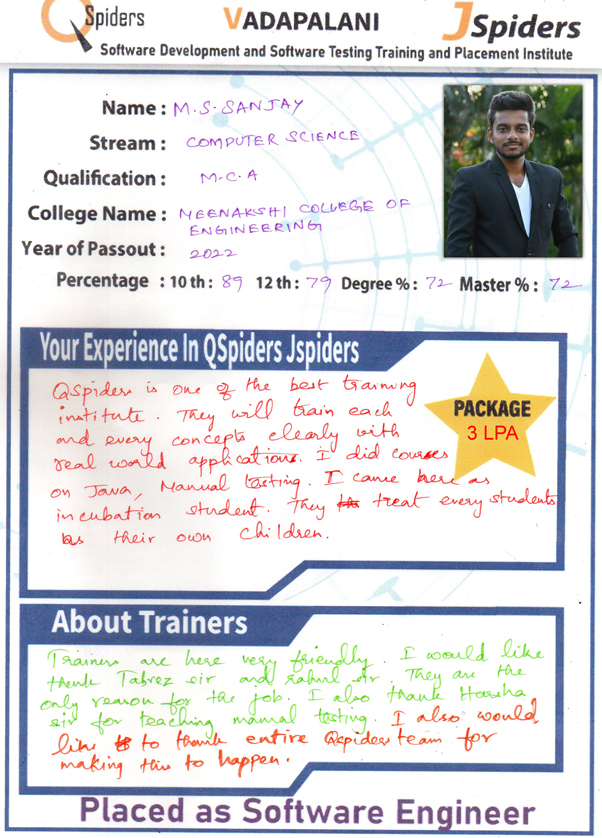 QSpiders VADAPALANI JSpiders
Software Development and Software Testing Training and Placement Institute
Name : M.S.SANJAY
Stream : COMPUTER SCIENCE
Qualification : M.C.A
College Name : MEENAKSHI COLLEGE OF
ENGINEERING
Year of Passout : 2022
Percentage : 10 th : 89 12 th : 79 Degree % : 72 Master % : 72
Your Experience In QSpiders Jspiders
QSpiders is one of the best training
institute. They will train each
and every concepts clearly with
real world applications. I did courses
on Java, Manual testing. I came here as
incubation student. They treat every students
as their own children.
PACKAGE
3 LPA
About Trainers
Trainers are here very friendly. I would like
thank Tabrez sir and rahul sir. They are the
only reason for the job. I also thank Harsha
sir for teaching manual testing. I also would
like to thank entire Qspiders team for
making this to happen.
Placed as Software Engineer